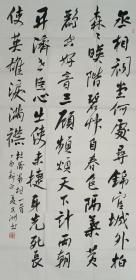 丞相祠堂何處尋錦官城外柏
森森映階碧草自春色隔葉黃
鸝空好音三顧頻煩天下計兩朝
開濟老臣心出師未捷身先死長
使英雄淚滿襟
杜甫蜀相一首